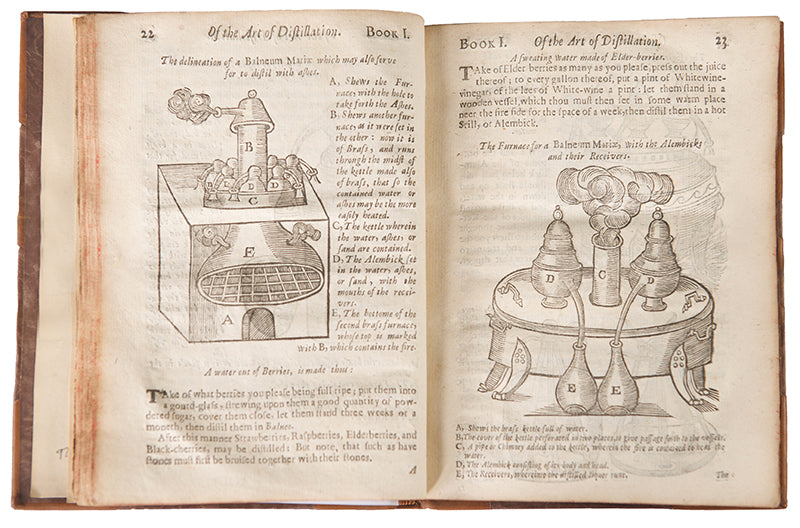 22 Of the Art of Distillation. Book I.
The delineation of a Balneum Mariæ which may also serve
for to distil with ashes.
A, Shews the Fur-
nace, with the hole to
take forth the Ashes.
B, Shews another fur-
nace, as it were set in
the other: now it is
of Brass, and runs
through the midst of
the kettle made also
of brass, that so the
contained water or
ashes may be the more
easily heated.
C, The kettle wherein
the water, ashes, or
sand are contained.
D, The Alembick set
in the water, ashes,
or sand, with the
mouths of the recei-
vers.
E, The bottom of the
second brass furnace,
whose top is marked
with B, which contains the fire.
B
D
D
D
C
E
A
A water out of Berries, is made thus:
TAke of what berries you please being full ripe; put them into
a gourd-glass, strewing upon them a good quantity of pow-
dered sugar, cover them close, let them stand three weeks or a
moneth, then distil them in Balneo.
After this manner Strawberries, Raspberries, Elderberries, and
Black-cherries, may be distilled: But note, that such as have
stones must first be bruised together with their stones.
A
Book I. Of the Art of Distillation. 23
A sweating water made of Elder-berries.
TAke of Elder berries as many as you please, press out the juice
thereof; to every gallon thereof, put a pint of White wine-
vinegar, of the lees of White-wine a pint: let them stand in a
wooden vessel, which thou must then set in some warm place
neer the fire side for the space of a week, then distil them in a hot
Still, or Alembick.
The Furnace for a Balneum Mariæ, with the Alembicks
and their Receivers.
D
C
D
E
E
A, Shews the brass kettle full of water.
B, The cover of the kettle perforated in two places, to give passage forth to the vessels.
C, A pipe or Chimney added to the kettle, wherein the fire is contained to heat the
water.
D, The Alembick consisting of its body and head.
E, The Receivers, whereinto the distilled liquor runs.
The